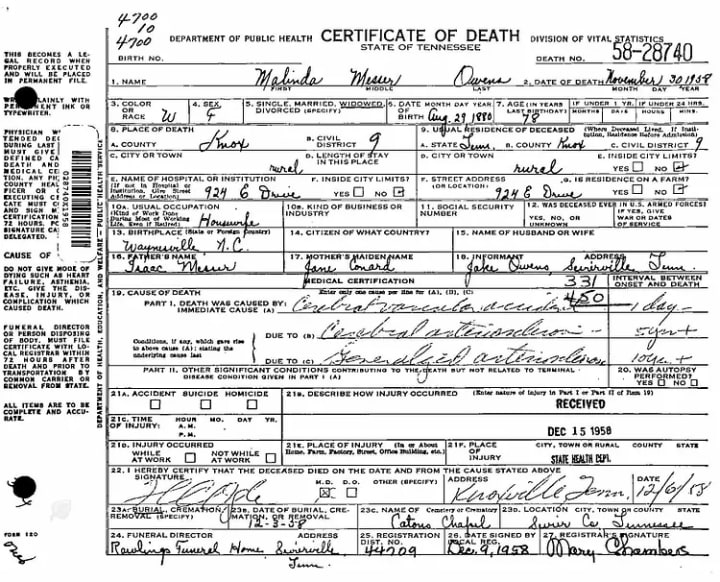 4700
10
4700
DEPARTMENT OF PUBLIC HEALTH CERTIFICATE OF DEATH DIVISION OF VITAL STATISTICS
STATE OF TENNESSEE
BIRTH NO. DEATH NO. 58-28740
THIS BECOMES A LEGAL RECORD WHEN PROPERLY EXECUTED AND WILL BE PLACED IN PERMANENT FILE.
PLAINLY WITH PERMANENT INK OR TYPEWRITER.
1. NAME Malinda Messer Owens 2. DATE OF DEATH November 30 1958
FIRST MIDDLE LAST MONTH DAY YEAR
3. COLOR OR RACE W 4. SEX F 5. SINGLE, MARRIED, WIDOWED, DIVORCED (SPECIFY) 6. DATE OF BIRTH MONTH DAY YEAR Aug. 29 1880 7. AGE (IN YEARS LAST BIRTHDAY) 78 IF UNDER 1 YR. MONTHS DAYS IF UNDER 24 HRS. HOURS MIN.
8. PLACE OF DEATH 9. USUAL RESIDENCE OF DECEASED (Where Deceased Lived. If Institution, Residence Before Admission)
A. COUNTY Knox B. CIVIL DISTRICT 9 A. STATE Tenn. B. COUNTY Knox C. CIVIL DISTRICT 9
C. CITY OR TOWN rural D. LENGTH OF STAY IN THIS PLACE D. CITY OR TOWN rural E. INSIDE CITY LIMITS? YES NO
E. NAME OF HOSPITAL OR INSTITUTION (If not in Hospital or Institution, Give Street Address or Location) 924 E Drive F. INSIDE CITY LIMITS? YES NO F. STREET ADDRESS (OR LOCATION) 924 E Drive G. IS RESIDENCE ON A FARM? YES NO
10A. USUAL OCCUPATION (Kind of Work Done During Most of Working Life, Even if Retired) Housewife 10B. KIND OF BUSINESS OR INDUSTRY 11. SOCIAL SECURITY NUMBER 12. WAS DECEASED EVER IN U.S. ARMED FORCES? YES, NO, OR UNKNOWN IF YES, GIVE WAR OR DATES OF SERVICE
13. BIRTHPLACE (State or Foreign Country) Waynesville N.C. 14. CITIZEN OF WHAT COUNTRY? 15. NAME OF HUSBAND OR WIFE
16. FATHER'S NAME Isaac Messer 17. MOTHER'S MAIDEN NAME Jane Conard 18. INFORMANT ADDRESS Jake Owens, Sevierville Tenn.
MEDICAL CERTIFICATION 331 INTERVAL BETWEEN ONSET AND DEATH
19. CAUSE OF DEATH Enter only one cause per line for (A), (B), (C) 450
PART I. DEATH WAS CAUSED BY: IMMEDIATE CAUSE (A) Cerebral vascular accident 1 day
Conditions, if any, which gave rise to above cause (A) stating the underlying cause last
DUE TO (B) Cerebral arteriosclerosis 5 yrs +
DUE TO (C) Generalized arteriosclerosis 10 yrs +
PART II. OTHER SIGNIFICANT CONDITIONS CONTRIBUTING TO THE DEATH BUT NOT RELATED TO TERMINAL DISEASE CONDITION GIVEN IN PART I (A) 20. WAS AUTOPSY PERFORMED? YES NO
21A. ACCIDENT SUICIDE HOMICIDE 21B. DESCRIBE HOW INJURY OCCURRED (Enter nature of injury in Part I or Part II of Item 19)
RECEIVED
21C. TIME OF INJURY: HOUR MO. DAY YR. A.M. P.M.
DEC 15 1958
21D. INJURY OCCURRED WHILE AT WORK NOT WHILE AT WORK 21E. PLACE OF INJURY (In or About Home, Farm, Factory, Street, Office Building, etc.) 21F. PLACE OF INJURY CITY, TOWN OR RURAL COUNTY STATE
STATE HEALTH DEPT.
22. I HEREBY CERTIFY THAT THE DECEASED DIED ON THE DATE AND FROM THE CAUSE STATED ABOVE
SIGNATURE M.D. D.O. OTHER (SPECIFY) ADDRESS Knoxville Tenn. DATE 12/6/58
23A. BURIAL, CREMATION, REMOVAL (SPECIFY) 23B. DATE OF BURIAL, CREMATION, OR REMOVAL 12-3-58 23C. NAME OF Cemetery or Crematory Catons Chapel 23D. LOCATION CITY, TOWN OR COUNTY STATE Sevier Co. Tennessee
24. FUNERAL DIRECTOR ADDRESS Rawlings Funeral Home Sevierville Tenn. 25. REGISTRATION DIST. NO. 44709 26. DATE SIGNED BY LOCAL REG. Dec. 9, 1958 27. REGISTRAR'S SIGNATURE Mary Chambers
CAUSE OF
DO NOT GIVE MODE OF DYING SUCH AS HEART FAILURE, ASTHENIA, ETC. GIVE THE DISEASE, INJURY, OR COMPLICATION WHICH CAUSED DEATH.
FUNERAL DIRECTOR OR PERSON DISPOSING OF BODY, MUST FILE CERTIFICATE WITH LOCAL REGISTRAR WITHIN 72 HOURS AFTER DEATH AND PRIOR TO TRANSPORTATION BY COMMON CARRIER OR REMOVAL FROM STATE.
ALL ITEMS ARE TO BE COMPLETE AND ACCURATE.
FORM 120